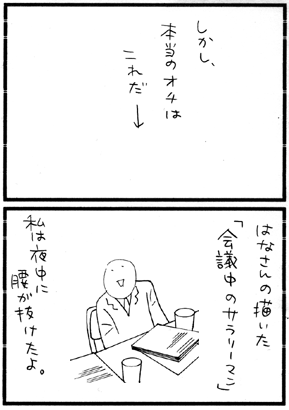 しかし、
本当のオチは
これだ→
はなさんの描いた
「会議中のサラリーマン」
私は夜中に
腰が抜けたよ。